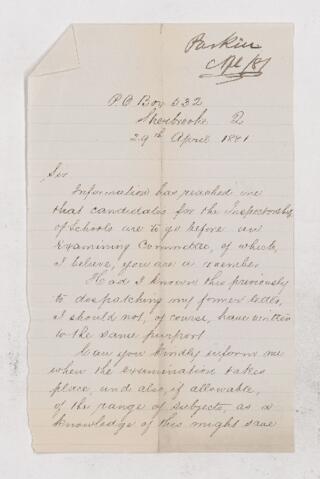 Parkin
Apl /81
P.O Box 532
Sherbrooke Q
29th April 1881
Sir
Information has reached me
that candidates for the Inspectorship
of Schools are to go before an
Examining Committee, of which,
I believe, you are a member.
Had I known this previously
to despatching my former letter,
I should not, of course, have written
to the same purport
Can you kindly inform me
when the examination takes
place, and also, if allowable,
of the range of subjects, as a
knowledge of this might save